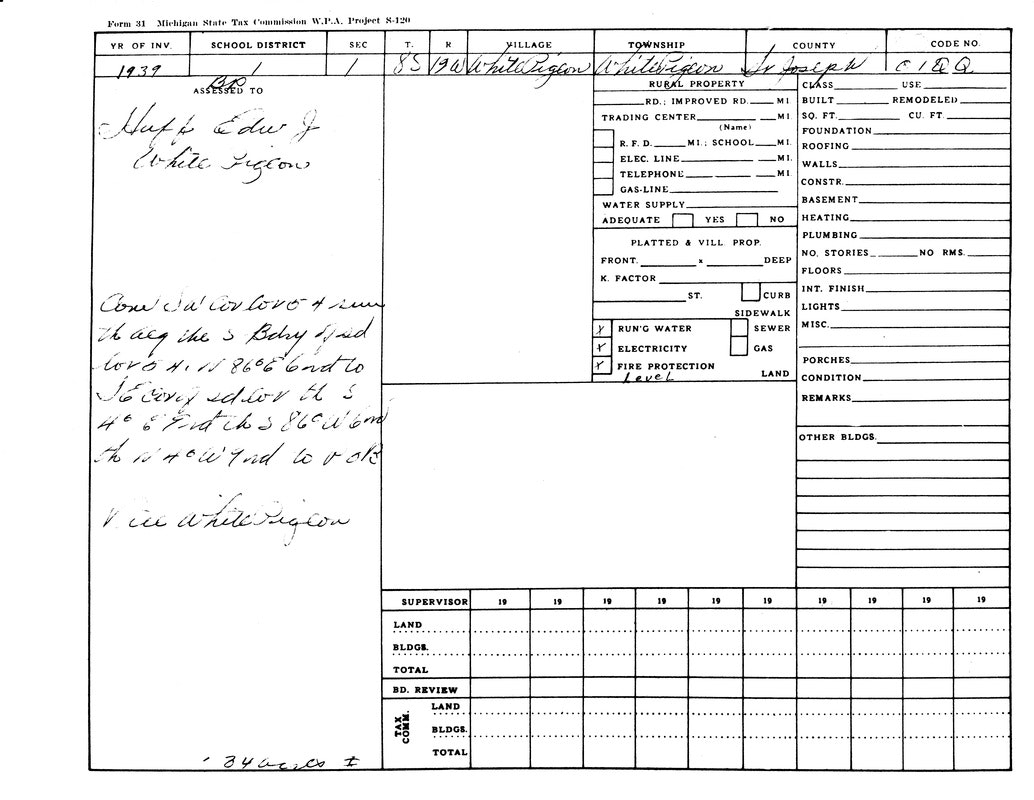 Form 31 Michigan State Tax Commission W.P.A. Project S-120
YR OF INV. SCHOOL DISTRICT SEC T. R VILLAGE TOWNSHIP COUNTY CODE NO.
1939 1 1 8S 12W White Pigeon White Pigeon St Joseph
ASSESSED TO
Huff Edw J
White Pigeon
Com SW cor lot 5 4 run
th alg the S Bdry of sd
lot 5 4. N 86° E 6 rd to
SE cor of sd lot th S
4° E 9 rd th S 86° W 6 rd
th N 4° W 9 rd to
White Pigeon
34 acres
RURAL PROPERTY
RD.; IMPROVED RD. MI.
TRADING CENTER MI.
(Name)
R. F. D. MI.; SCHOOL MI.
ELEC. LINE MI.
TELEPHONE MI.
GAS-LINE
WATER SUPPLY
ADEQUATE YES NO
PLATTED & VILL. PROP.
FRONT. x DEEP
K. FACTOR
ST. CURB
SIDEWALK
X RUN'G WATER SEWER
X ELECTRICITY GAS
X FIRE PROTECTION
Level LAND
CLASS USE
BUILT REMODELED
SQ. FT. CU. FT.
FOUNDATION
ROOFING
WALLS
CONSTR.
BASEMENT
HEATING
PLUMBING
NO. STORIES NO RMS.
FLOORS
INT. FINISH
LIGHTS
MISC.
PORCHES
CONDITION
REMARKS
OTHER BLDGS.
SUPERVISOR 19 19 19 19 19 19 19 19 19 19
LAND
BLDGS.
TOTAL
BD. REVIEW
TAX COMM.
LAND
BLDGS.
TOTAL